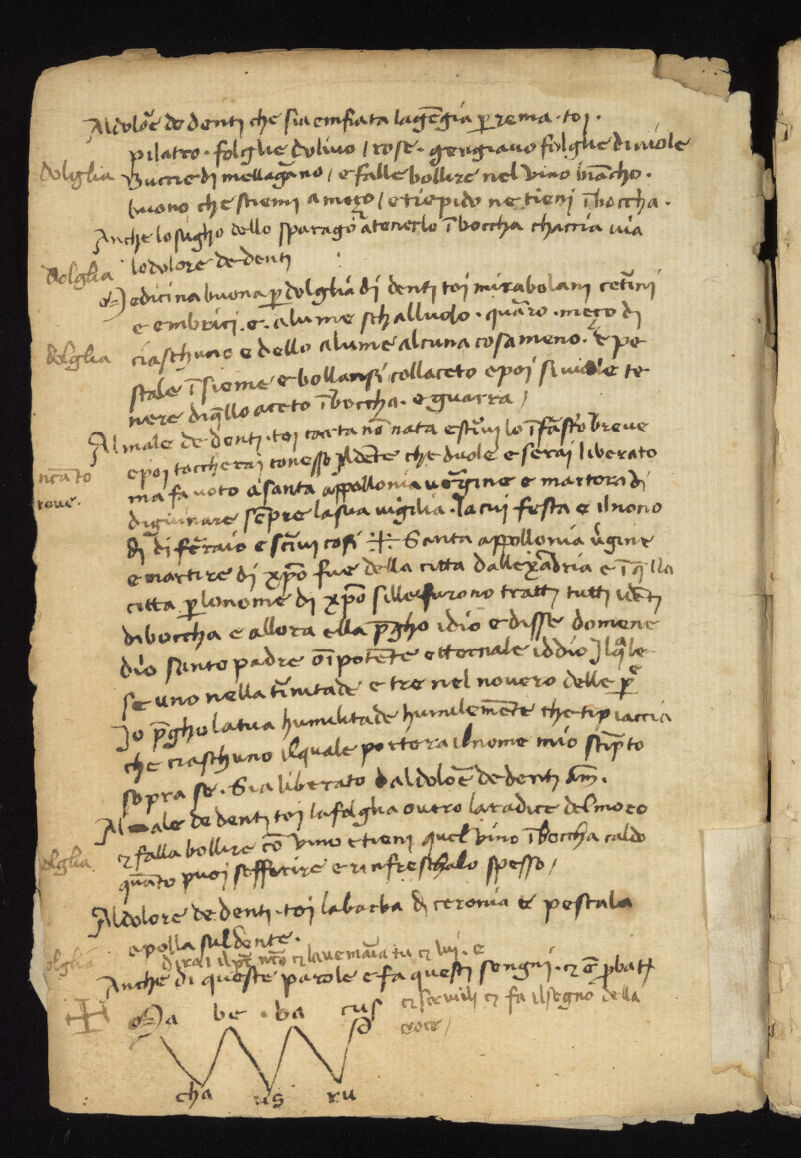 Al dolōe de denti che sia emfiata la gēgia p rema · toi ·
pilatro · folglie dulivo / rose · gengiavo folglie di viole
dolglia
Buccie di mellagāno / e falle bollire nel vino biācho ·
buono che sciemi a meço / e tiepido ne tieni ī boccha ·
Anche lo sugho dello sparago a tenerlo ī boccha chaccia via
lo dolore de denti
dolglia
Medicina buona p dolglia di denti toi mirabolani cetrini
e embrici · e · alume schalluolo · quāro · meço di
dolglia
ciaschuno e dello alume alcuna cosa meno · e pe
stale īsieme e bollansi collaceto e poi si vuole te
nere di qllo aceto ī boccha · e guarra /
Al male de denti · toi carta nō nata e scivi lo īfascto breve
e poi toccherai con esso il dēte che duole e serai liberato
ncāto
reve ·
ma fa voto a santa appollonia vergine e martora di
digiunare sēpre la sua vigilia · la cui festa e il nono
di di feraio e scivi cosi ※ Santa appollonia vgine
e martire di xpo fue della citta dallexādria e ī qlla
citta p lo nome di xpo si lle furono tratti tutti i dēti
di boccha e allora ella pgho idio e disse domene
dio santo padre oīpotēte etternale iddio Il qle
se uno nella trinitade e tre nel novero delle p
Io pgho la tua humilitade humilemēte che ti piaccia
che ciaschuno il quale portera il nome mio scipto
sopra se · Sia liberato dal dolōe de denti am̄ ·
Al male de denti toi la folglia overo la radice del moro
⁊ falla bollire cō vino e tieni quel vino ī boccha caldo
olglia
quāto puoi sefferire e rinfreschalo spesso /
Al dolore de denti · toi la barba di ceronia e pestala
e polla sul dente ·
olglia
Dirai il p̄r nr̄o ⁊ lavemāia tu ⁊ lui · e
Anche di queste parole e fa questi sengni · ⁊ ē pbat
⁊ scrivili ⁊ fa il segno della
croce /
Ma be · ba cus
cha us ru